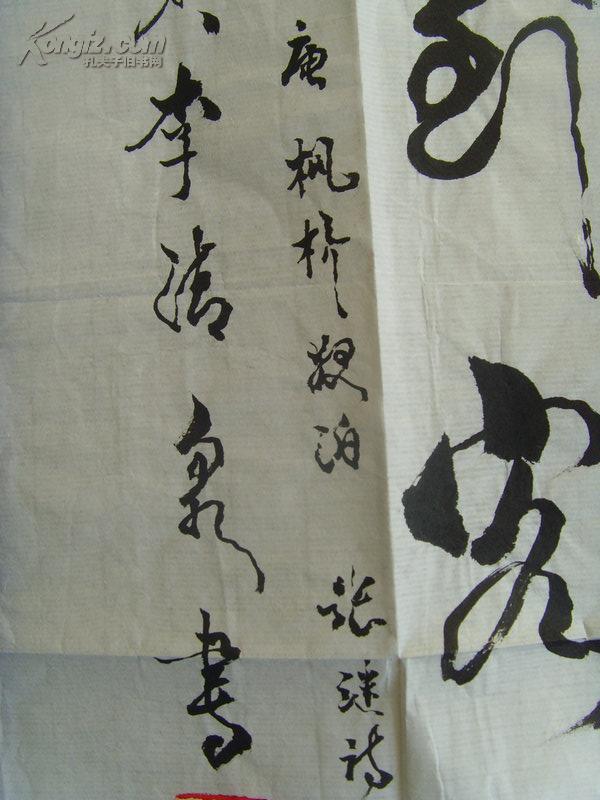 到客
唐 枫桥夜泊 张继诗
李清泉书
Kongfz.com
孔夫子旧书网